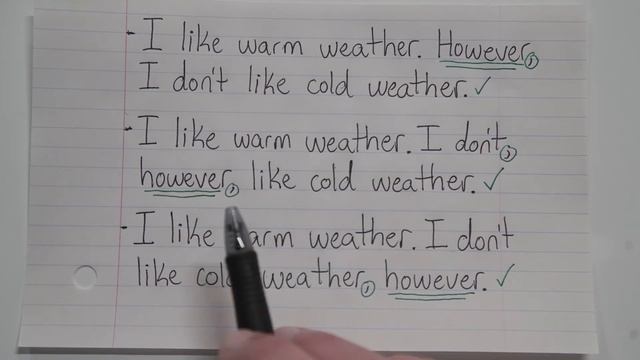 - I like warm weather. However,
I don't like cold weather. ✓
- I like warm weather. I don't,
however, like cold weather. ✓
- I like warm weather. I don't
like cold weather, however. ✓